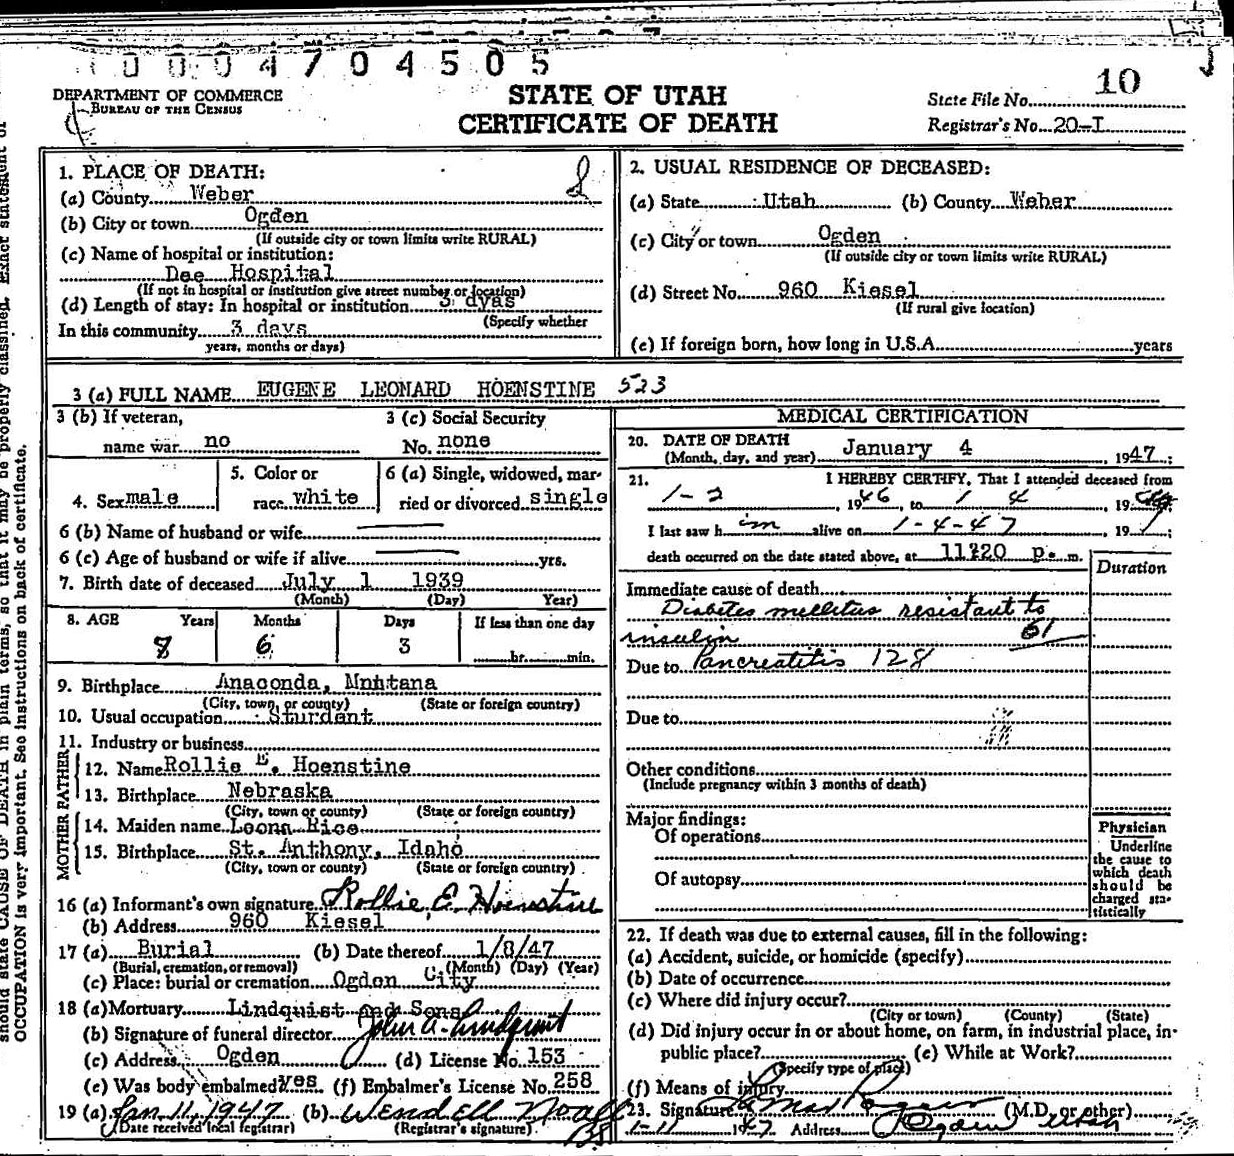 0004704505
DEPARTMENT OF COMMERCE
BUREAU OF THE CENSUS
STATE OF UTAH
CERTIFICATE OF DEATH
State File No. 10
Registrar's No. 20-I
1. PLACE OF DEATH:
(a) County Weber
(b) City or town Ogden
(If outside city or town limits write RURAL)
(c) Name of hospital or institution:
Dee Hospital
(If not in hospital or institution give street number or location)
(d) Length of stay: In hospital or institution 3 dyas
(Specify whether
In this community 3 days
years, months or days)
2. USUAL RESIDENCE OF DECEASED:
(a) State Utah (b) County Weber
(c) City or town Ogden
(If outside city or town limits write RURAL)
(d) Street No. 960 Kiesel
(If rural give location)
(e) If foreign born, how long in U.S.A. years
3 (a) FULL NAME EUGENE LEONARD HOENSTINE 523
3 (b) If veteran,
name war no
3 (c) Social Security
No. none
4. Sex male
5. Color or
race white
6 (a) Single, widowed, mar-
ried or divorced single
6 (b) Name of husband or wife
6 (c) Age of husband or wife if alive yrs.
7. Birth date of deceased July 1 1939
(Month) (Day) Year)
8. AGE Years Months Days If less than one day
6 3 hr. min.
9. Birthplace Anaconda, Mnntana
(City, town, or county) (State or foreign country)
10. Usual occupation Sturdent
11. Industry or business
FATHER
12. Name Rollie E. Hoenstine
13. Birthplace Nebraska
(City, town or county) (State or foreign country)
MOTHER
14. Maiden name Leona Rice
15. Birthplace St. Anthony, Idaho
(City, town or county) (State or foreign country)
16 (a) Informant's own signature Rollie E. Hoenstine
(b) Address 960 Kiesel
17 (a) Burial (b) Date thereof 1/8/47
(Burial, cremation, or removal) (Month) (Day) (Year)
(c) Place: burial or cremation Ogden City
18 (a) Mortuary Lindquist and Sons
(b) Signature of funeral director John A. Lindquist
(c) Address Ogden (d) License No. 153
(e) Was body embalmed? yes (f) Embalmer's License No. 258
19 (a) Jan 11, 1947 (b) Wendell Noall
(Date received local registrar) (Registrar's signature)
MEDICAL CERTIFICATION
20. DATE OF DEATH
(Month, day, and year) January 4 1947;
21. I HEREBY CERTIFY, That I attended deceased from
1-2, 1946, to 1 4, 19
I last saw him alive on 1-4-47 19 ;
death occurred on the date stated above, at 11:20 p. m.
Duration
Immediate cause of death
Diabetes mellitus resistant to
insulin 61
Due to Pancreatitis 128
Due to
Other conditions
(Include pregnancy within 3 months of death)
Major findings:
Of operations
Of autopsy
Physician
Underline
the cause to
which death
should be
charged sta-
tistically
22. If death was due to external causes, fill in the following:
(a) Accident, suicide, or homicide (specify)
(b) Date of occurrence
(c) Where did injury occur?
(City or town) (County) (State)
(d) Did injury occur in or about home, on farm, in industrial place, in
public place? (e) While at Work?
(Specify type of place)
(f) Means of injury
23. Signature (M.D. or other)
1-11 1947 Address Ogden Utah
should state CAUSE OF DEATH in plain terms, so that it may be properly classified. Exact statement of
OCCUPATION is very important. See instructions on back of certificate.